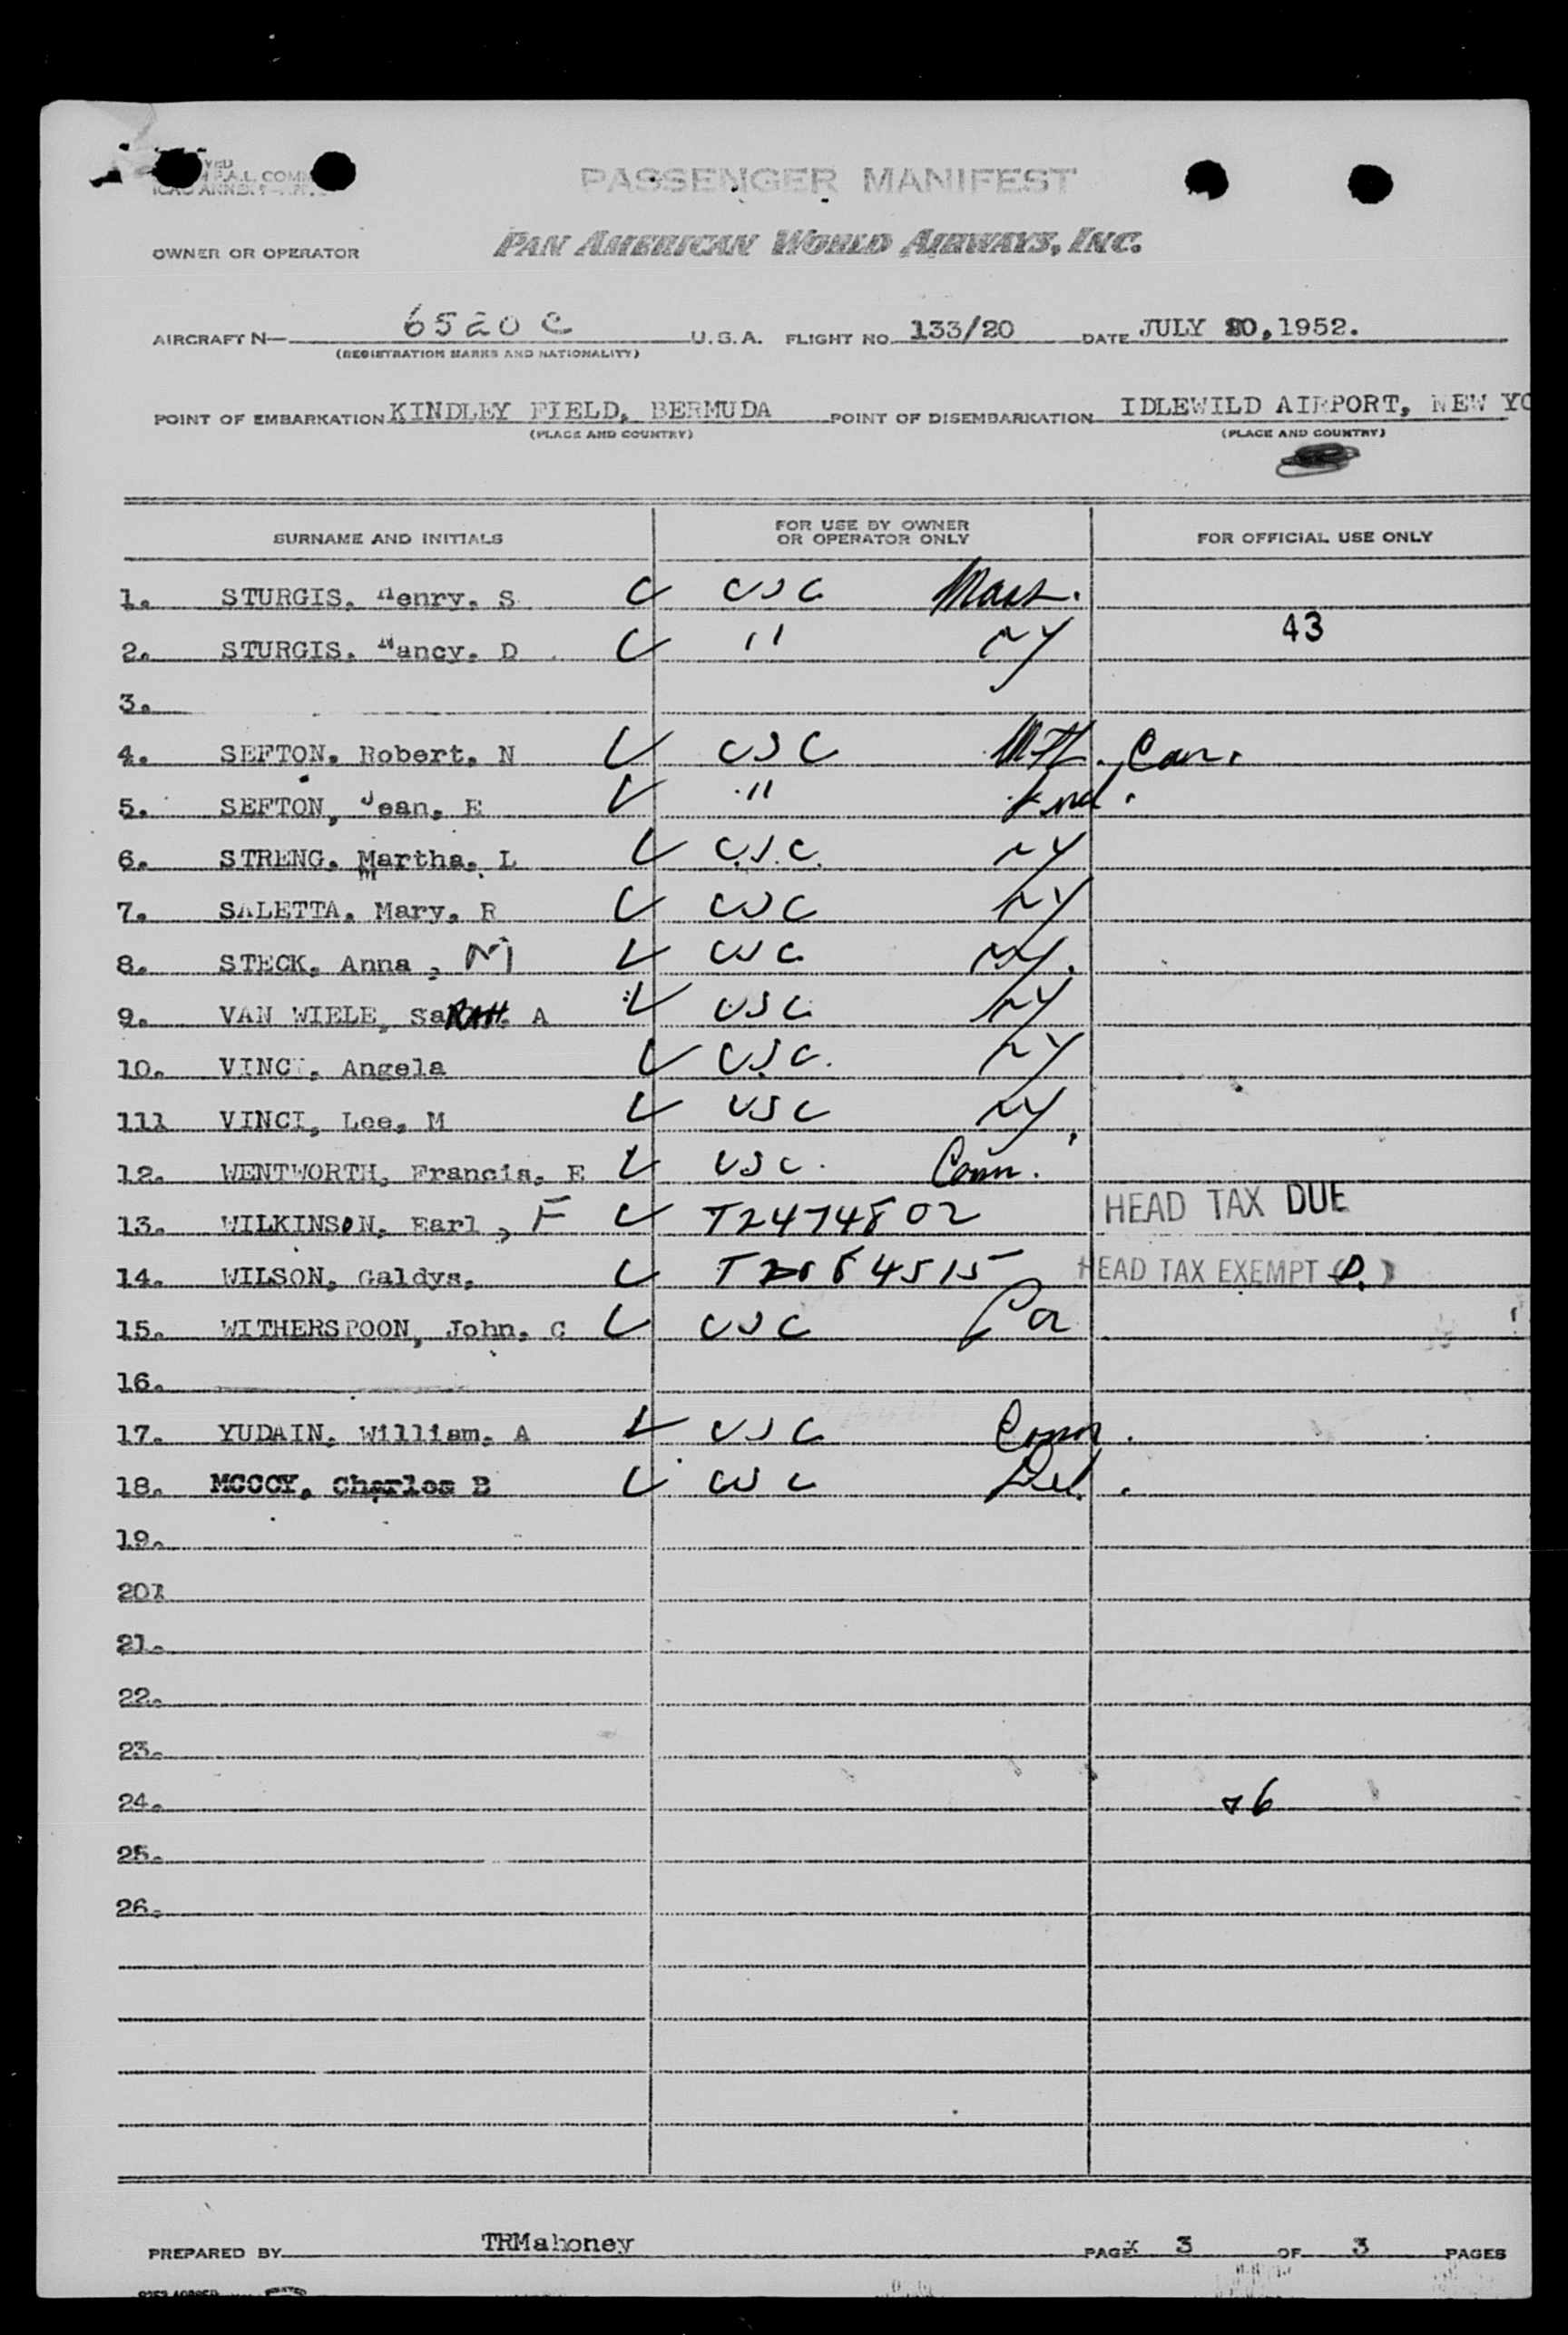 PASSENGER MANIFEST
OWNER OR OPERATOR PAN AMERICAN WORLD AIRWAYS, INC.
AIRCRAFT N- 6520 C U.S.A. FLIGHT NO. 133/20 DATE JULY 20, 1952.
(REGISTRATION MARKS AND NATIONALITY)
POINT OF EMBARKATION KINDLEY FIELD, BERMUDA POINT OF DISEMBARKATION IDLEWILD AIRPORT, NEW YO
(PLACE AND COUNTRY) (PLACE AND COUNTRY)
SURNAME AND INITIALS FOR USE BY OWNER OR OPERATOR ONLY FOR OFFICIAL USE ONLY
1. STURGIS. Henry. S USC Mass.
43
2. STURGIS. Nancy. D " NY
3.
4. SEFTON. Robert. N USC Can.
5. SEFTON, Jean. E " Ind.
6. STRENG. Martha. L U.S.C. NY
7. SALETTA. Mary. R USC NY
8. STECK. Anna, M USC NY.
9. VAN WIELE, SaRAH. A USC NY
10. VINCI. Angela USC. NY
111 VINCI, Lee. M USC NY.
12. WENTWORTH, Francis. E USC. Conn.
13. WILKINSON. Earl, F T2474802 HEAD TAX DUE
14. WILSON, Galdys. HEAD TAX EXEMPT
15. WITHERSPOON, John. C USC
16.
17. YUDAIN. William. A USC Conn.
18. MCCOY. Charles B USC Del.
19.
20.
21.
22.
23.
24.
25.
26.
PREPARED BY TRMahoney PAGE 3 OF 3 PAGES